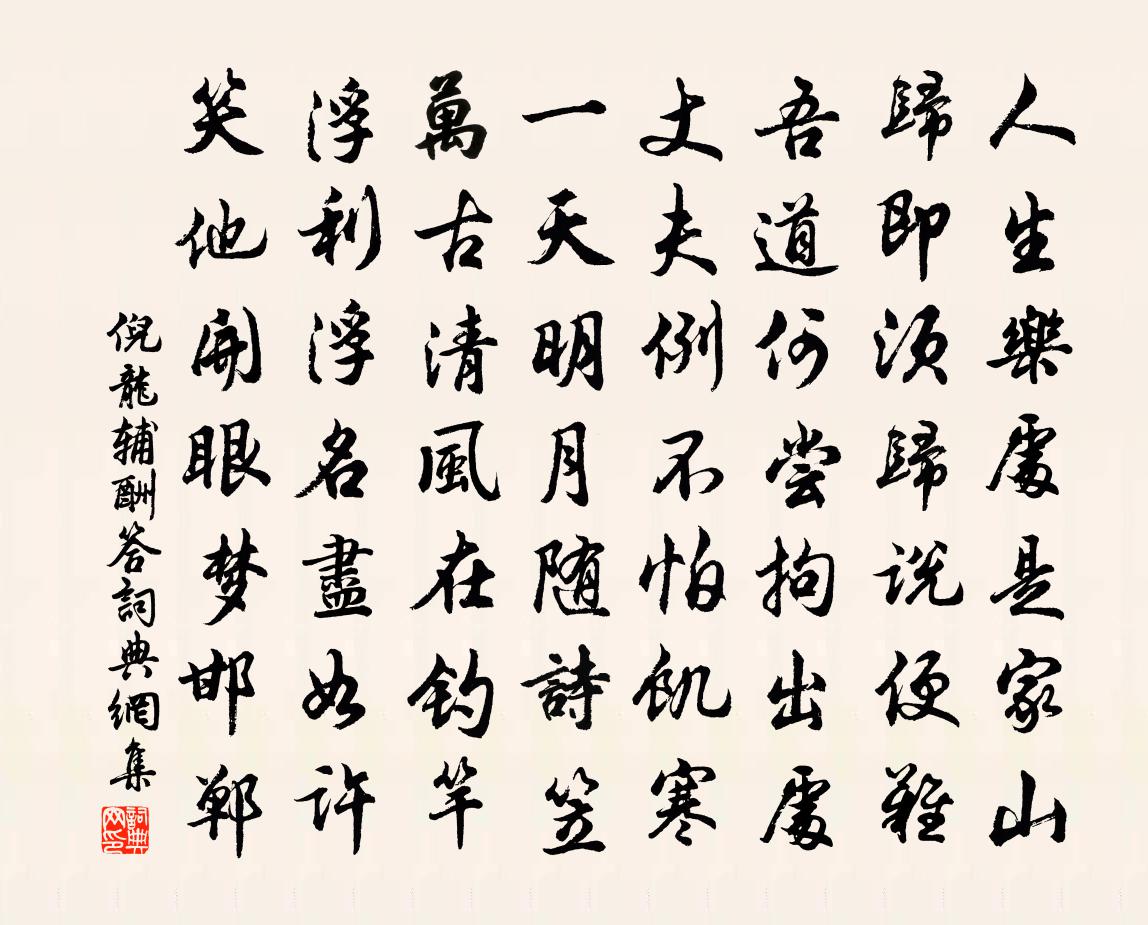 人生樂處是家山
歸即須歸説便難
吾道何嘗拘出處
丈夫例不怕飢寒
一天明月随詩笠
萬古清風在釣竿
浮利浮名盡如許
笑他開眼梦邯鄲
倪龍辅酬答詞典網集
詞典网印